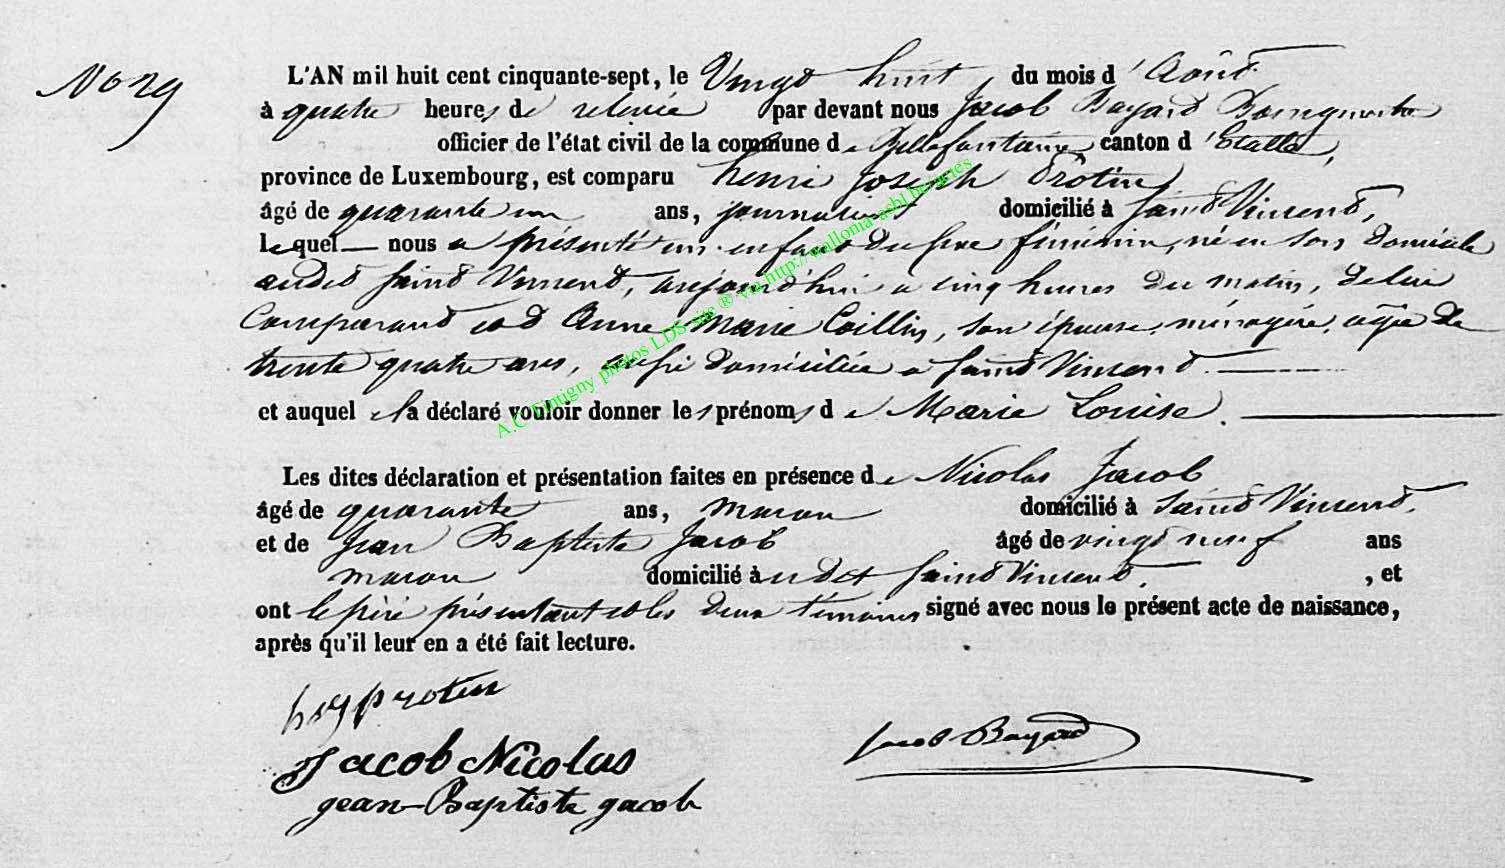 No 29
L'AN mil huit cent cinquante-sept, le Vingt huit, du mois d'Août
à quatre heures de relevée par devant nous Jacob Bayard Bourgmestre
officier de l'état civil de la commune de Bellefontaine canton d'Etalle,
province de Luxembourg, est comparu henri Joseph Protin
âgé de quarante un ans, journalier domicilié à Saint Vincent,
lequel nous a présenté un enfant du sexe féminin, né en son domicile
audit Saint Vincent, aujourd'hui a cinq heures du matin, de lui
Comparant et d'Anne Marie Coillin, son épouse, ménagère, agée de
trente quatre ans, aussi domiciliée a Saint Vincent.
et auquel il a déclaré vouloir donner les prénoms de Marie Louise.
Les dites déclaration et présentation faites en présence de Nicolas Jacob
âgé de quarante ans, macon domicilié à Saint Vincent.
et de Jean Baptiste Jacob âgé de vingt neuf ans
macon domicilié à udit Saint Vincent. , et
ont le père présentant et les deux témoins signé avec nous le présent acte de naissance,
après qu'il leur en a été fait lecture.
h j protin
Jacob Nicolas
Jacob Bayard
jean-Baptiste jacob
A.C Tintigny photos LDS site ® via http://wallonia-asbl.be/actes